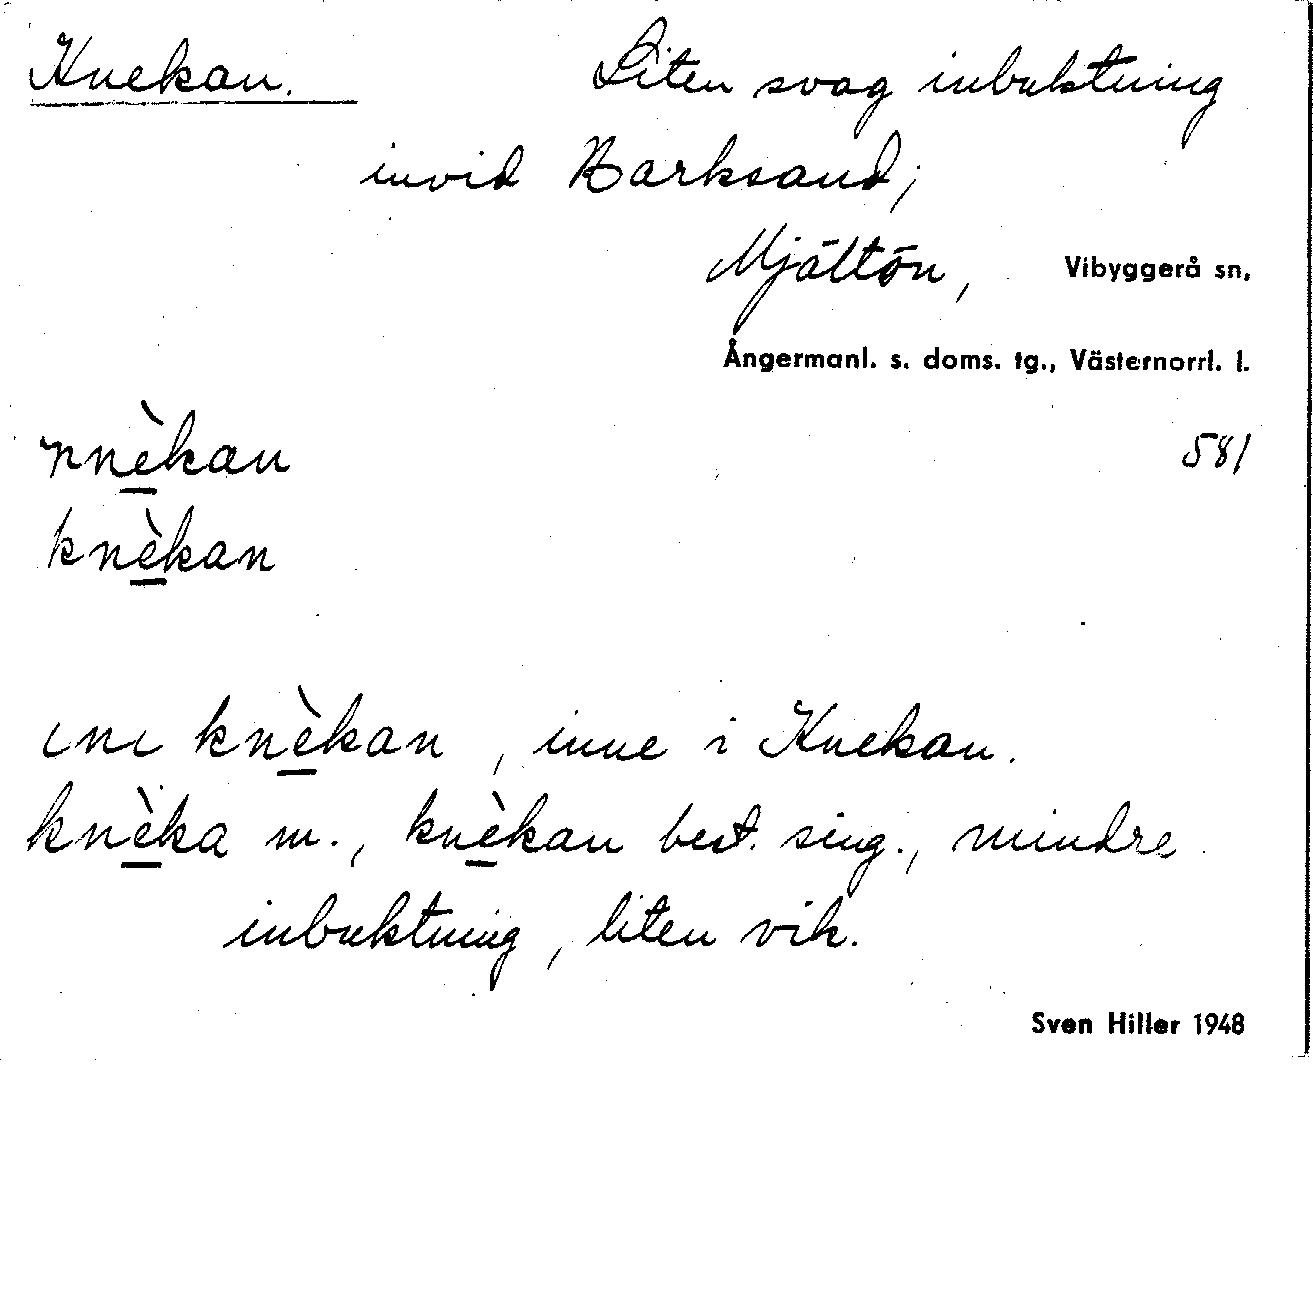 Knekan. Liten svag inbuktning
invid Barksand;
Mjältön, Vibyggerå sn,
Ångermanl. s. doms. tg., Västernorrl. l.
nnè̱kan 581
knè̱kan
ını knè̱kan, inne i Knekan.
knè̱ka m., knè̱kan best. sing., mindre
inbuktning, liten vik.
Sven Hiller 1948